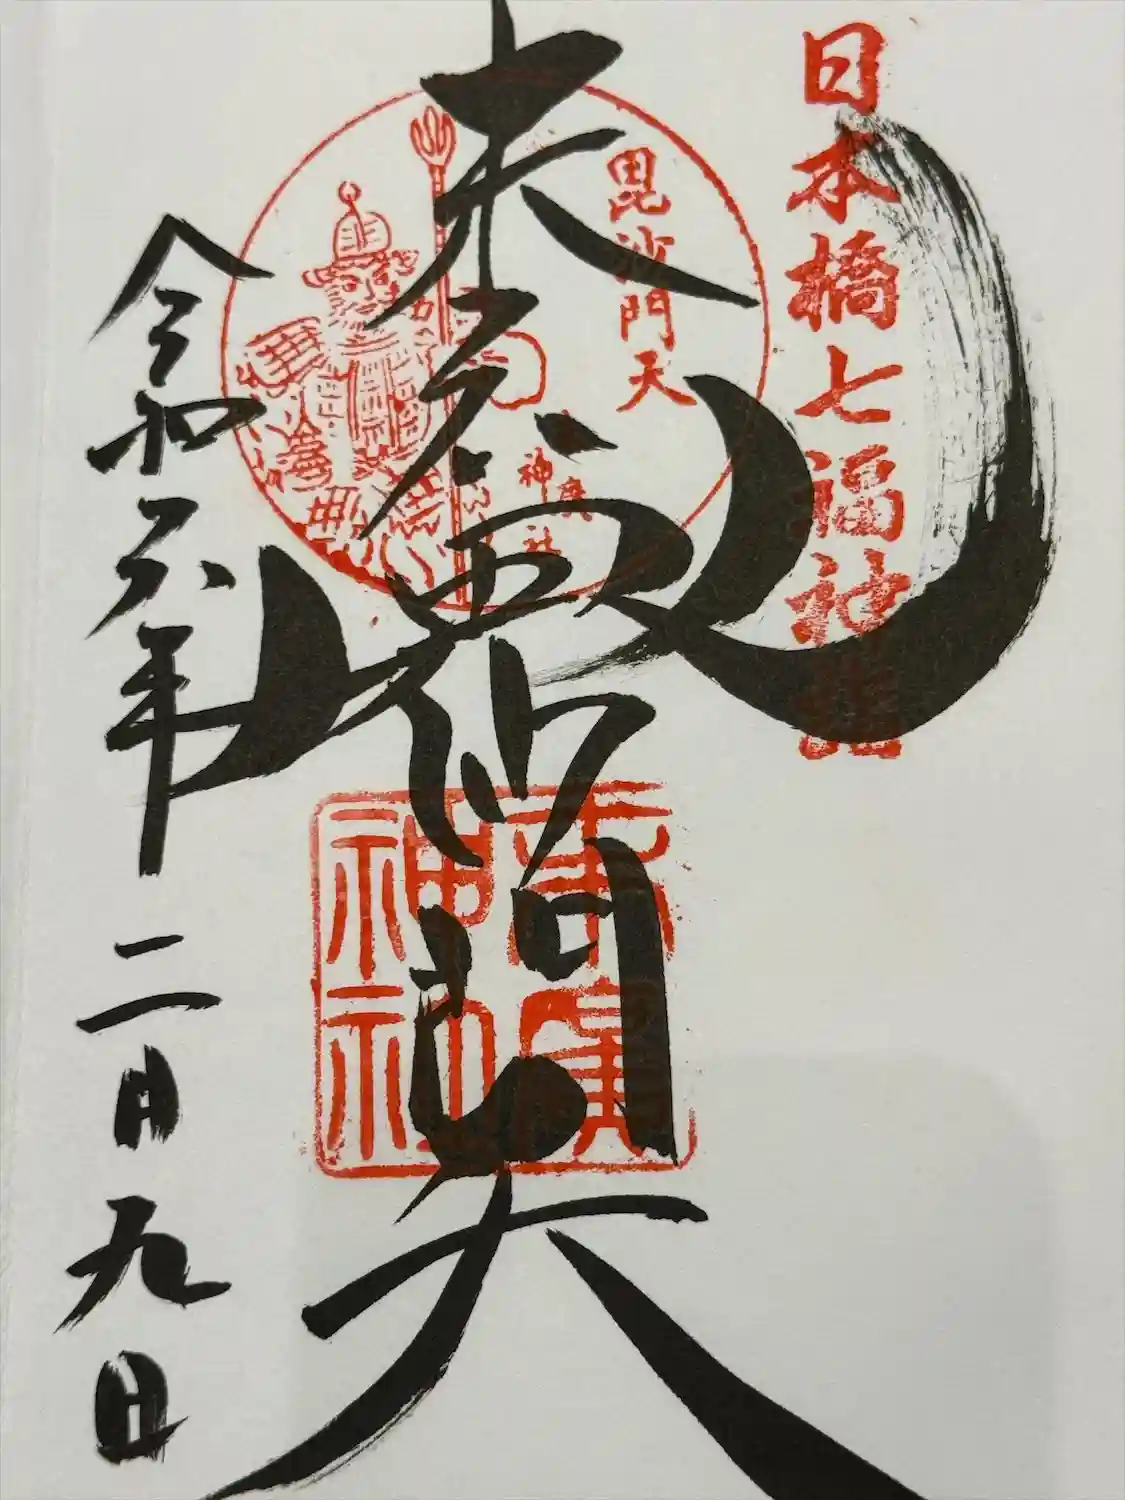 日本橋七福神詣
毘沙門天
末廣神社
末廣毘沙門天
末廣神社
令和六年二月九日